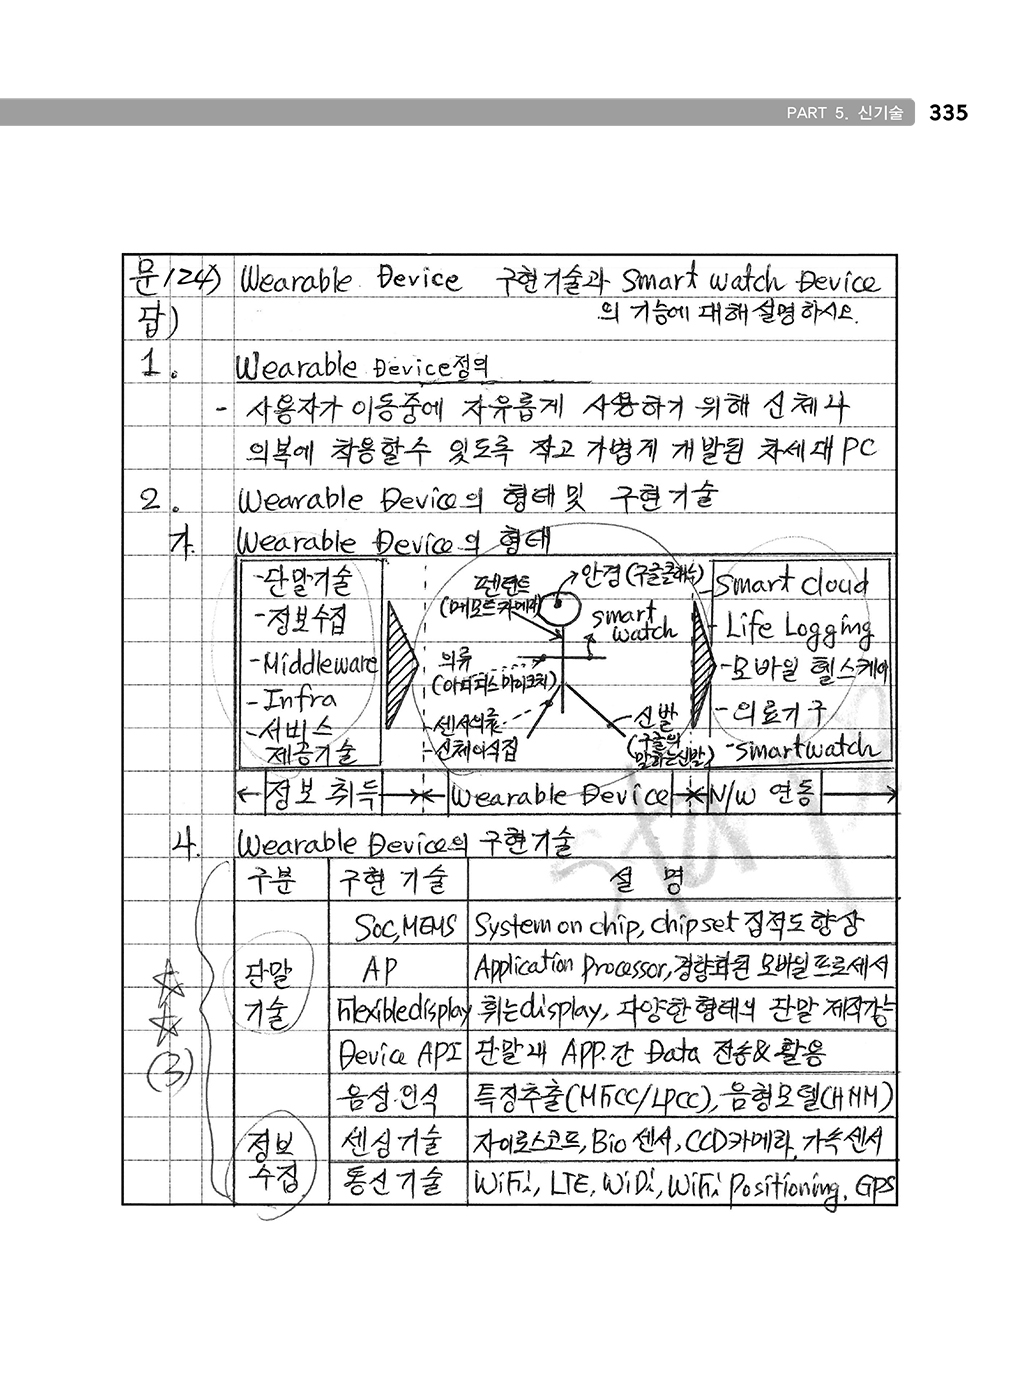 PART 5. 신기술 335
문124) Wearable Device 구현기술과 Smart Watch Device
의 기능에 대해 설명하시오.
답)
1. Wearable Device 정의
- 사용자가 이동중에 자유롭게 사용하기 위해 신체나
의복에 착용할수 있도록 작고 가볍게 개발된 차세대 PC
2. Wearable Device의 형태 및 구현기술
가. Wearable Device의 형태
-단말기술
-정보수집
-Middleware
-Infra
-서비스
제공기술
펜던트
안경(구글글래스)
smart
watch
의류
-센서의류
-신체이식집
-신발
(구글의
말하는신발)
-smart cloud
- Life Logging
-모바일 헬스케어
-의료기구
-smartwatch
정보 취득 Wearable Device N/W 연동
나. Wearable Device의 구현기술
구분 구현 기술 설 명
SoC, MEMS System on chip, chipset 집적도 향상
단말 AP Application Processor, 경량화된 모바일 프로세서
기술 Flexible display 휘는 display, 다양한 형태의 단말 제작가능
Device API 단말내 APP.간 Data 전송 & 활용
음성.인식 특징추출(MFCC/LPCC), 음형모델(HMM)
정보 센싱기술 자이로스코프, Bio 센서, CCD카메라, 가속센서
수집 통신기술 WiFi, LTE, WiDi, WiFi Positioning, GPS
(3)